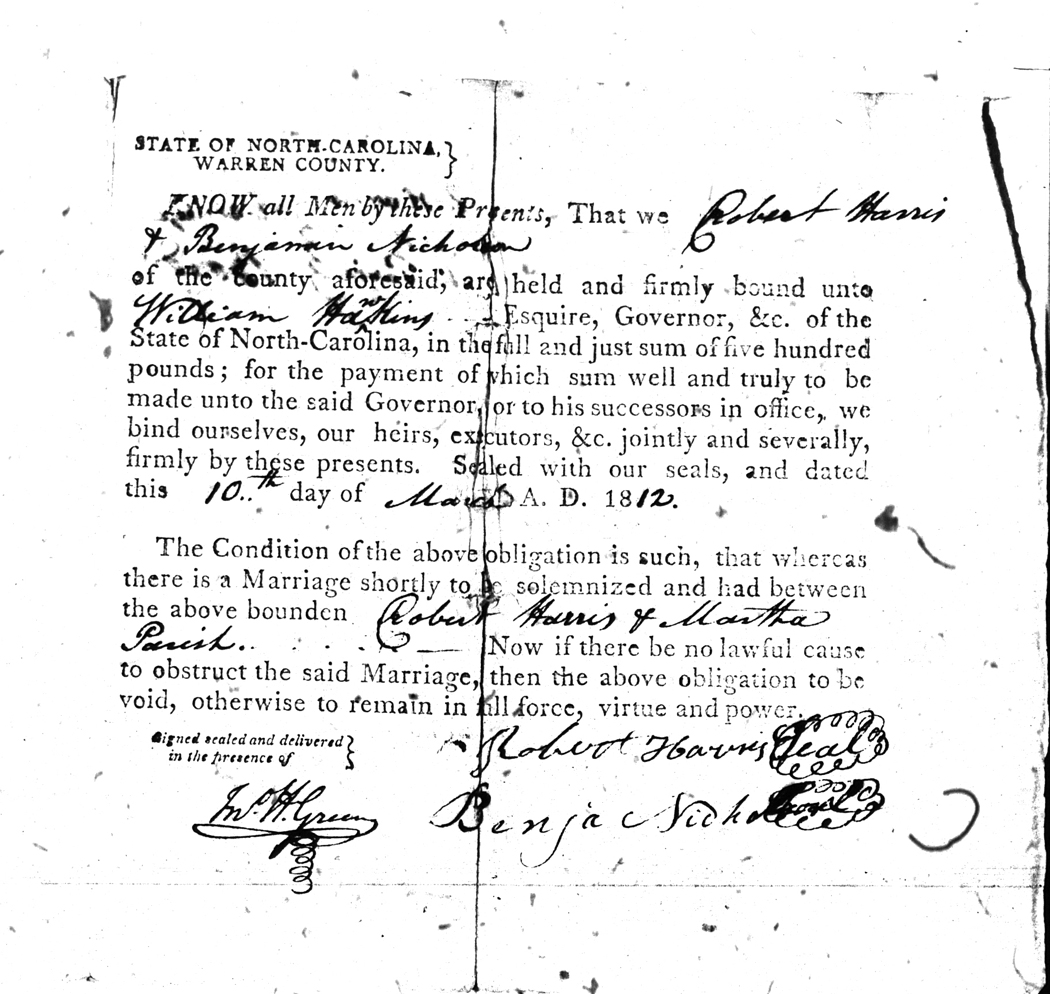 STATE OF NORTH-CAROLINA,
WARREN COUNTY.
KNOW all Men by these Presents, That we Robert Harris
& Benjamin Nicholson
of the County aforesaid, are held and firmly bound unto
William Hawkins Esquire, Governor, &c. of the
State of North-Carolina, in the full and just sum of five hundred
pounds; for the payment of which sum well and truly to be
made unto the said Governor, or to his successors in office, we
bind ourselves, our heirs, executors, &c. jointly and severally,
firmly by these presents. Sealed with our seals, and dated
this 10.th day of March A. D. 1812.
The Condition of the above obligation is such, that whereas
there is a Marriage shortly to be solemnized and had between
the above bounden Robert Harris & Martha
Parish. Now if there be no lawful cause
to obstruct the said Marriage, then the above obligation to be
void, otherwise to remain in full force, virtue and power.
Signed sealed and delivered
in the presence of
Robert Harris Seal
Jno. H. Green
Benja Nicholson Seal